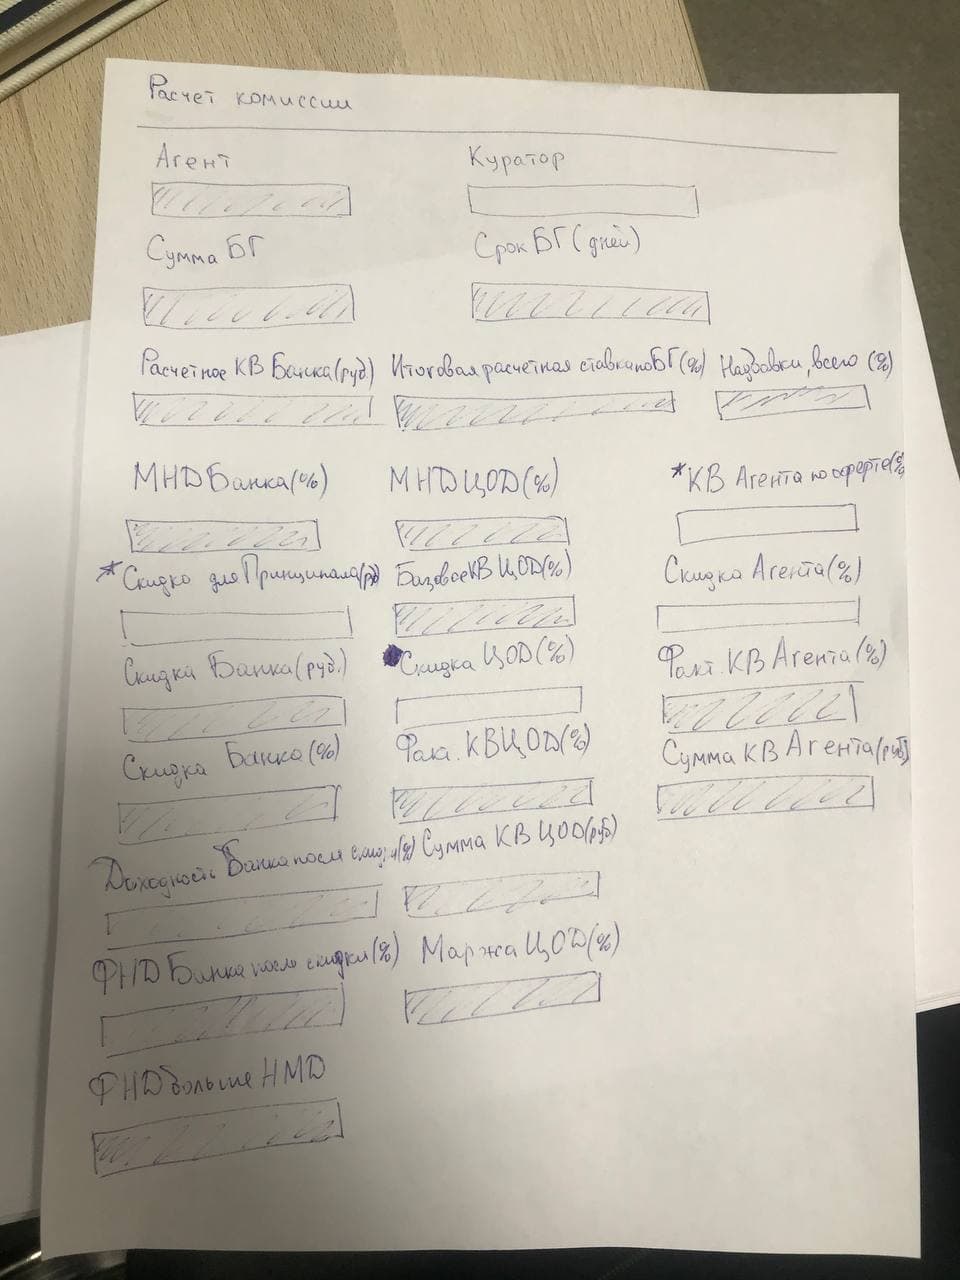 Расчет комиссии
Агент Куратор
Сумма БГ Срок БГ (дней)
Расчетное КВ Банка (руб.) Итоговая расчетная ставка по БГ (%) Надбавки, всего (%)
МНД Банка (%) МНД ЦОД (%) *КВ Агента по оферте (%
*Скидка для Принципала (руб) Базовое КВ ЦОД (%) Скидка Агента (%)
Скидка Банка (руб.) Скидка ЦОД (%) Факт. КВ Агента (%)
Скидка Банка (%) Факт. КВ ЦОД (%) Сумма КВ Агента (руб)
Доходность Банка после скидки (%) Сумма КВ ЦОД (руб)
ФНД Банка после скидки (%) Маржа ЦОД (%)
ФНД больше НМД